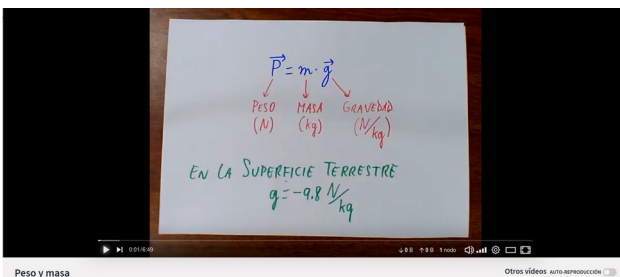 P = m · g
PESO MASA GRAVEDAD
(N) (kg) (N/kg)
EN LA SUPERFICIE TERRESTRE
g = -9.8 N/kg
0:01/6:49
↓ 0 B ↑ 0 B 1 nodo
Peso y masa
Otros vídeos AUTO-REPRODUCCIÓN